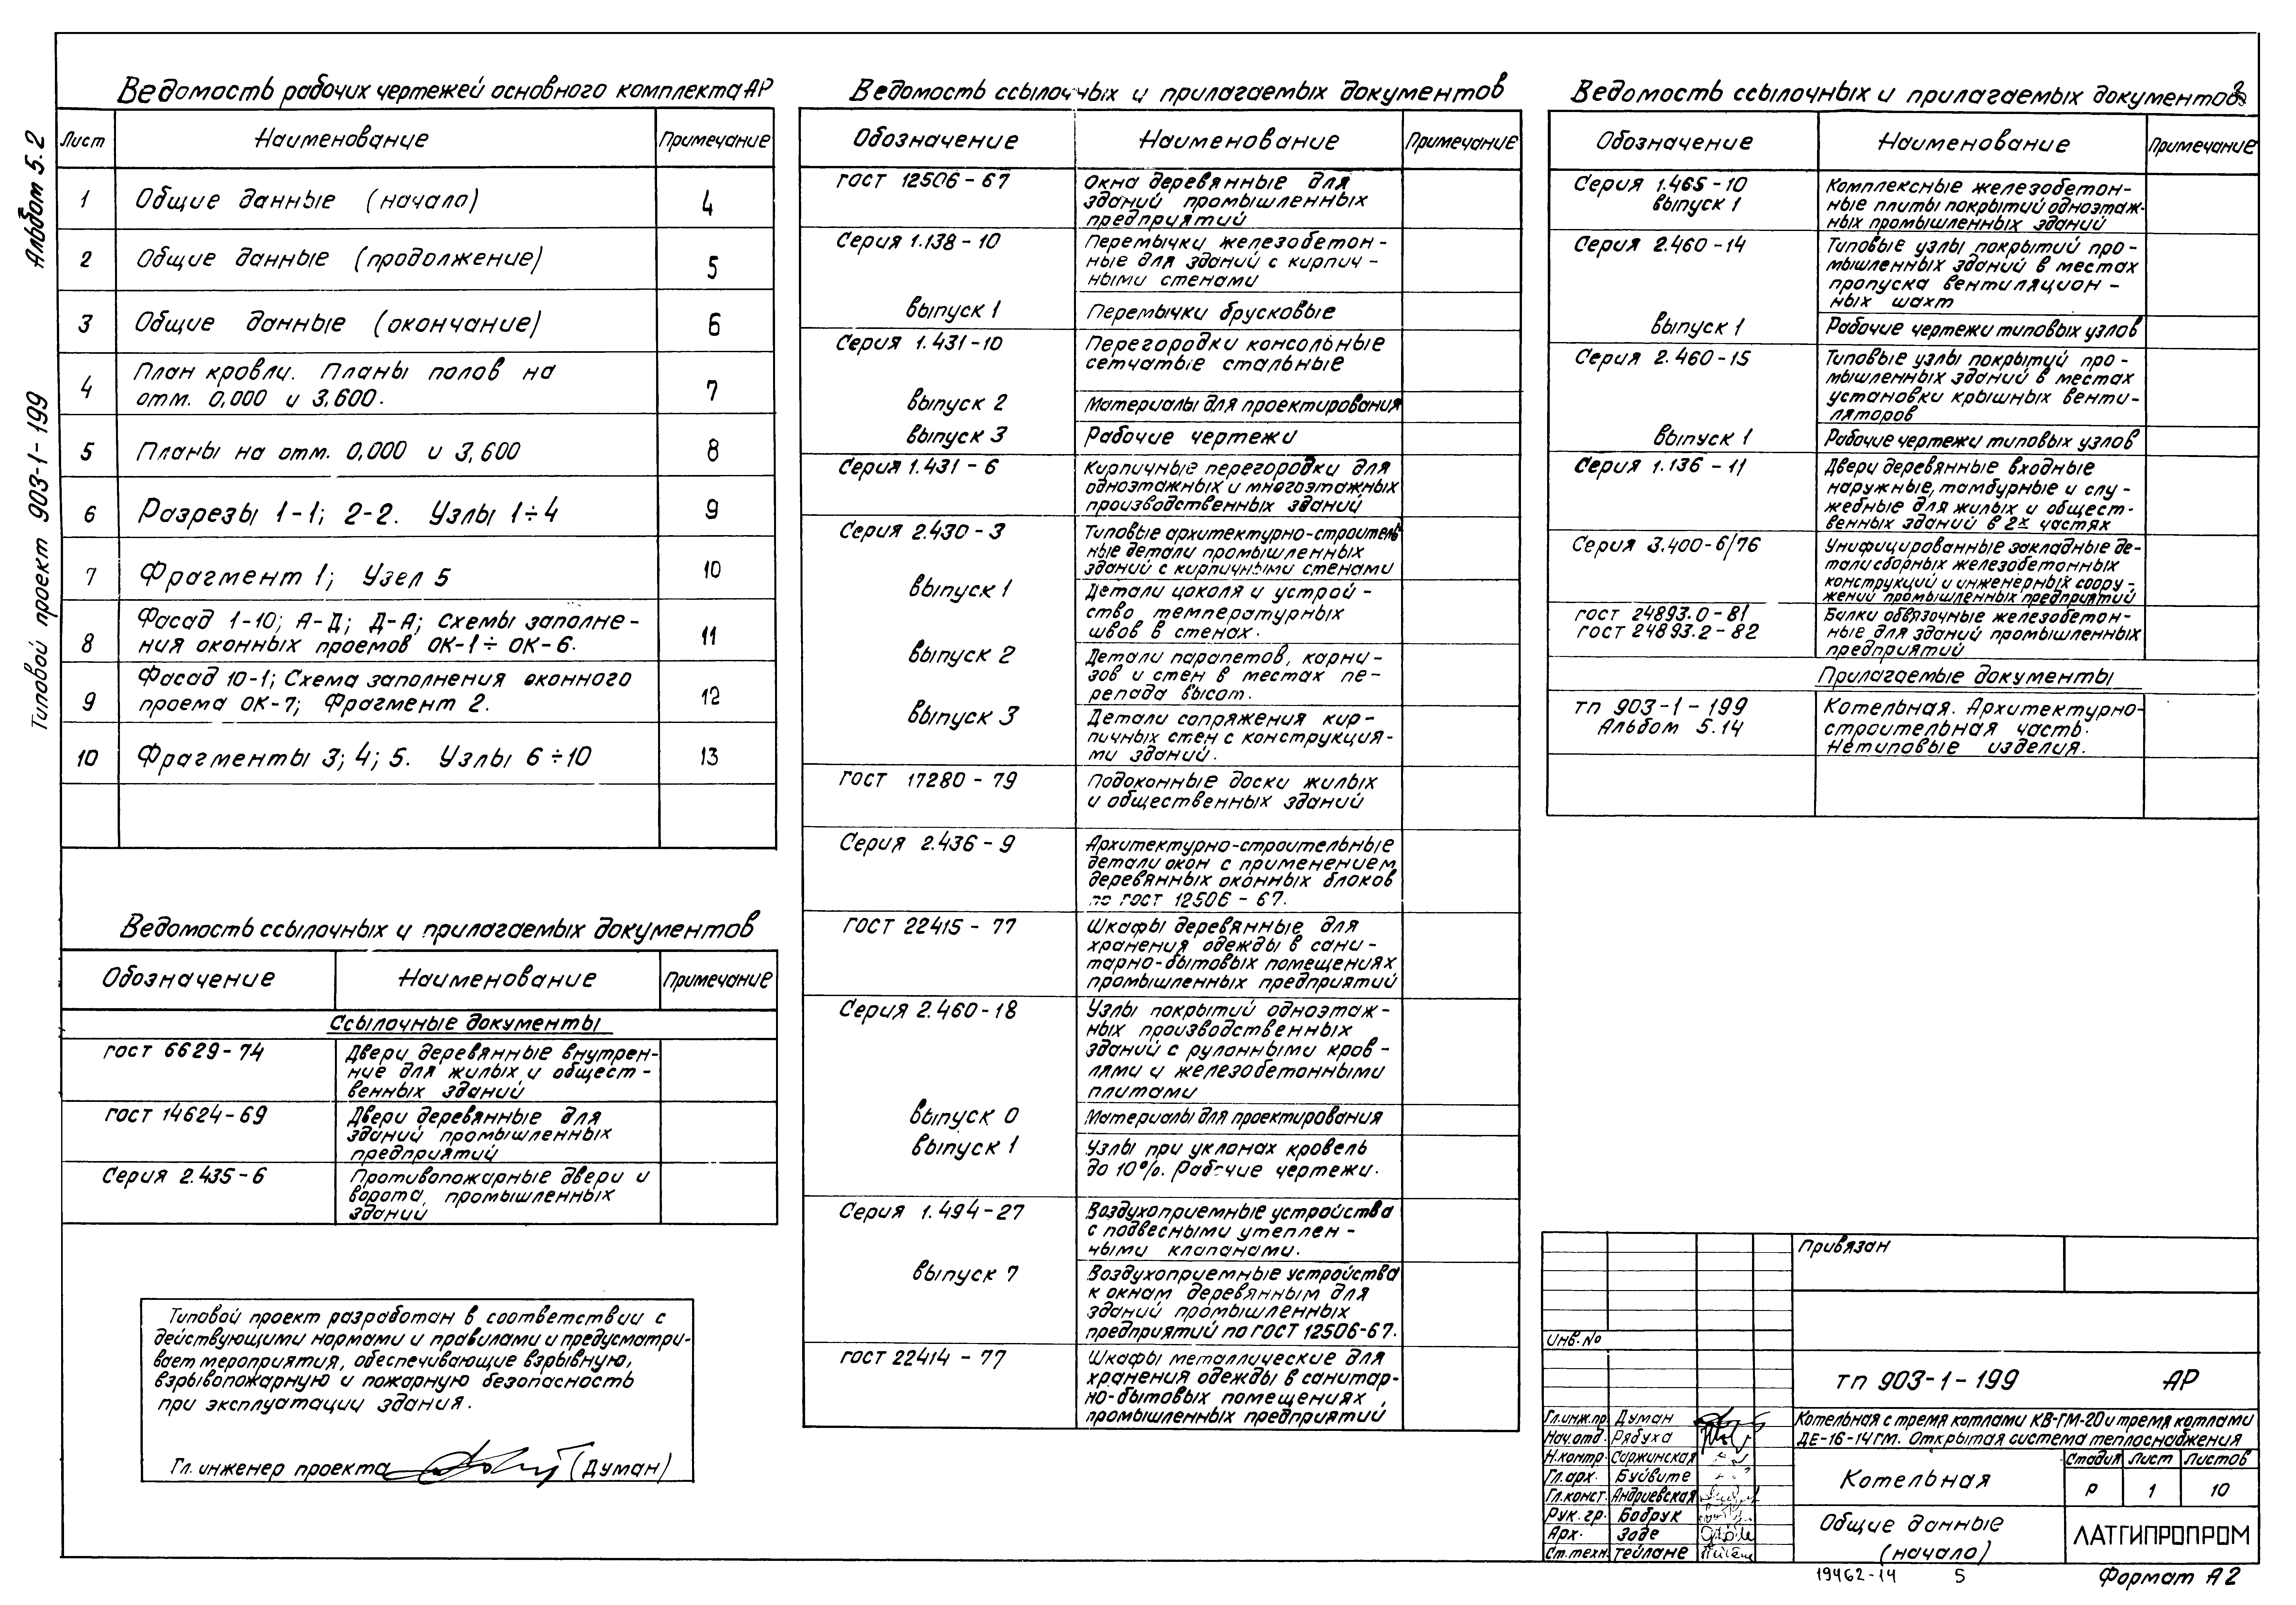 Альбом 5.2
Типовой проект 903-1-199
Ведомость рабочих чертежей основного комплекта АР
Лист Наименование Примечание
1 Общие данные (начало) 4
2 Общие данные (продолжение) 5
3 Общие данные (окончание) 6
4 План кровли. Планы полов на
отм. 0,000 и 3,600. 7
5 Планы на отм. 0,000 и 3,600 8
6 Разрезы 1-1; 2-2. Узлы 1÷4 9
7 Фрагмент 1; Узел 5 10
8 Фасад 1-10; А-Д; Д-А; Схемы заполне-
ния оконных проемов ОК-1÷ОК-6. 11
9 Фасад 10-1; Схема заполнения оконного
проема ОК-7; Фрагмент 2. 12
10 Фрагменты 3; 4; 5. Узлы 6÷10 13
Ведомость ссылочных и прилагаемых документов
Обозначение Наименование Примечание
Ссылочные документы
ГОСТ 6629-74 Двери деревянные внутрен-
ние для жилых и общест-
венных зданий
ГОСТ 14624-69 Двери деревянные для
зданий промышленных
предприятий
Серия 2.435-6 Противопожарные двери и
ворота промышленных
зданий
Типовой проект разработан в соответствии с
действующими нормами и правилами и предусматри-
вает мероприятия, обеспечивающие взрывную,
взрывопожарную и пожарную безопасность
при эксплуатации здания.
Гл. инженер проекта (Думан)
Ведомость ссылочных и прилагаемых документов
Обозначение Наименование Примечание
ГОСТ 12506-67 Окна деревянные для
зданий промышленных
предприятий
Серия 1.138-10 Перемычки железобетон-
ные для зданий с кирпич-
ными стенами
выпуск 1 Перемычки брусковые
Серия 1.431-10 Перегородки консольные
сетчатые стальные
выпуск 2 Материалы для проектирования
выпуск 3 Рабочие чертежи
Серия 1.431-6 Кирпичные перегородки для
одноэтажных и многоэтажных
производственных зданий
Серия 2.430-3 Типовые архитектурно-строитель
ные детали промышленных
зданий с кирпичными стенами
выпуск 1 Детали цоколя и устрой-
ство температурных
швов в стенах.
выпуск 2 Детали парапетов, карни-
зов и стен в местах пе-
репада высот.
выпуск 3 Детали сопряжения кир-
пичных стен с конструкция-
ми зданий.
ГОСТ 17280-79 Подоконные доски жилых
и общественных зданий
Серия 2.436-9 Архитектурно-строительные
детали окон с применением
деревянных оконных блоков
по ГОСТ 12506-67.
ГОСТ 22415-77 Шкафы деревянные для
хранения одежды в сани-
тарно-бытовых помещениях
промышленных предприятий
Серия 2.460-18 Узлы покрытий одноэтаж-
ных производственных
зданий с рулонными кров-
лями и железобетонными
плитами
выпуск 0 Материалы для проектирования
выпуск 1 Узлы при уклонах кровель
до 10%. Рабочие чертежи.
Серия 1.494-27 Воздухоприемные устройства
с подвесными утеплен-
ными клапанами.
выпуск 7 Воздухоприемные устройства
к окнам деревянным для
зданий промышленных
предприятий по ГОСТ 12506-67.
ГОСТ 22414-77 Шкафы металлические для
хранения одежды в санитар-
но-бытовых помещениях
промышленных предприятий
Ведомость ссылочных и прилагаемых документов
Обозначение Наименование Примечание
Серия 1.465-10 Комплексные железобетон-
выпуск 1 ные плиты покрытий одноэтаж-
ных промышленных зданий
Серия 2.460-14 Типовые узлы покрытий про-
мышленных зданий в местах
пропуска вентиляцион-
ных шахт
выпуск 1 Рабочие чертежи типовых узлов
Серия 2.460-15 Типовые узлы покрытий про-
мышленных зданий в местах
установки крышных венти-
ляторов
выпуск 1 Рабочие чертежи типовых узлов
Серия 1.136-11 Двери деревянные входные
наружные, тамбурные и слу-
жебные для жилых и общест-
венных зданий в 2х частях
Серия 3.400-6/76 Унифицированные закладные де-
тали сборных железобетонных
конструкций и инженерных соору-
жений промышленных предприятий
ГОСТ 24893.0-81 Балки обвязочные железобетон-
ГОСТ 24893.2-82 ные для зданий промышленных
предприятий
Прилагаемые документы
ТП 903-1-199 Котельная. Архитектурно-
Альбом 5.14 строительная часть.
Нетиповые изделия.
Привязан
Инв. №
ТП 903-1-199 АР
Гл.инж.пр. Думан
Нач.отд. Рябуха
Н.контр. Саржинская
Гл.арх. Буйвите
Гл.конст. Андриевская
Рук.гр. Бобрук
Арх. Заде
Ст.техн. Тейлане
Котельная с тремя котлами КВ-ГМ-20 и тремя котлами
ДЕ-16-14ГМ. Открытая система теплоснабжения
Котельная
Стадия Лист Листов
Р 1 10
Общие данные
(начало)
ЛАТГИПРОПРОМ
19462-14 5 Формат А2